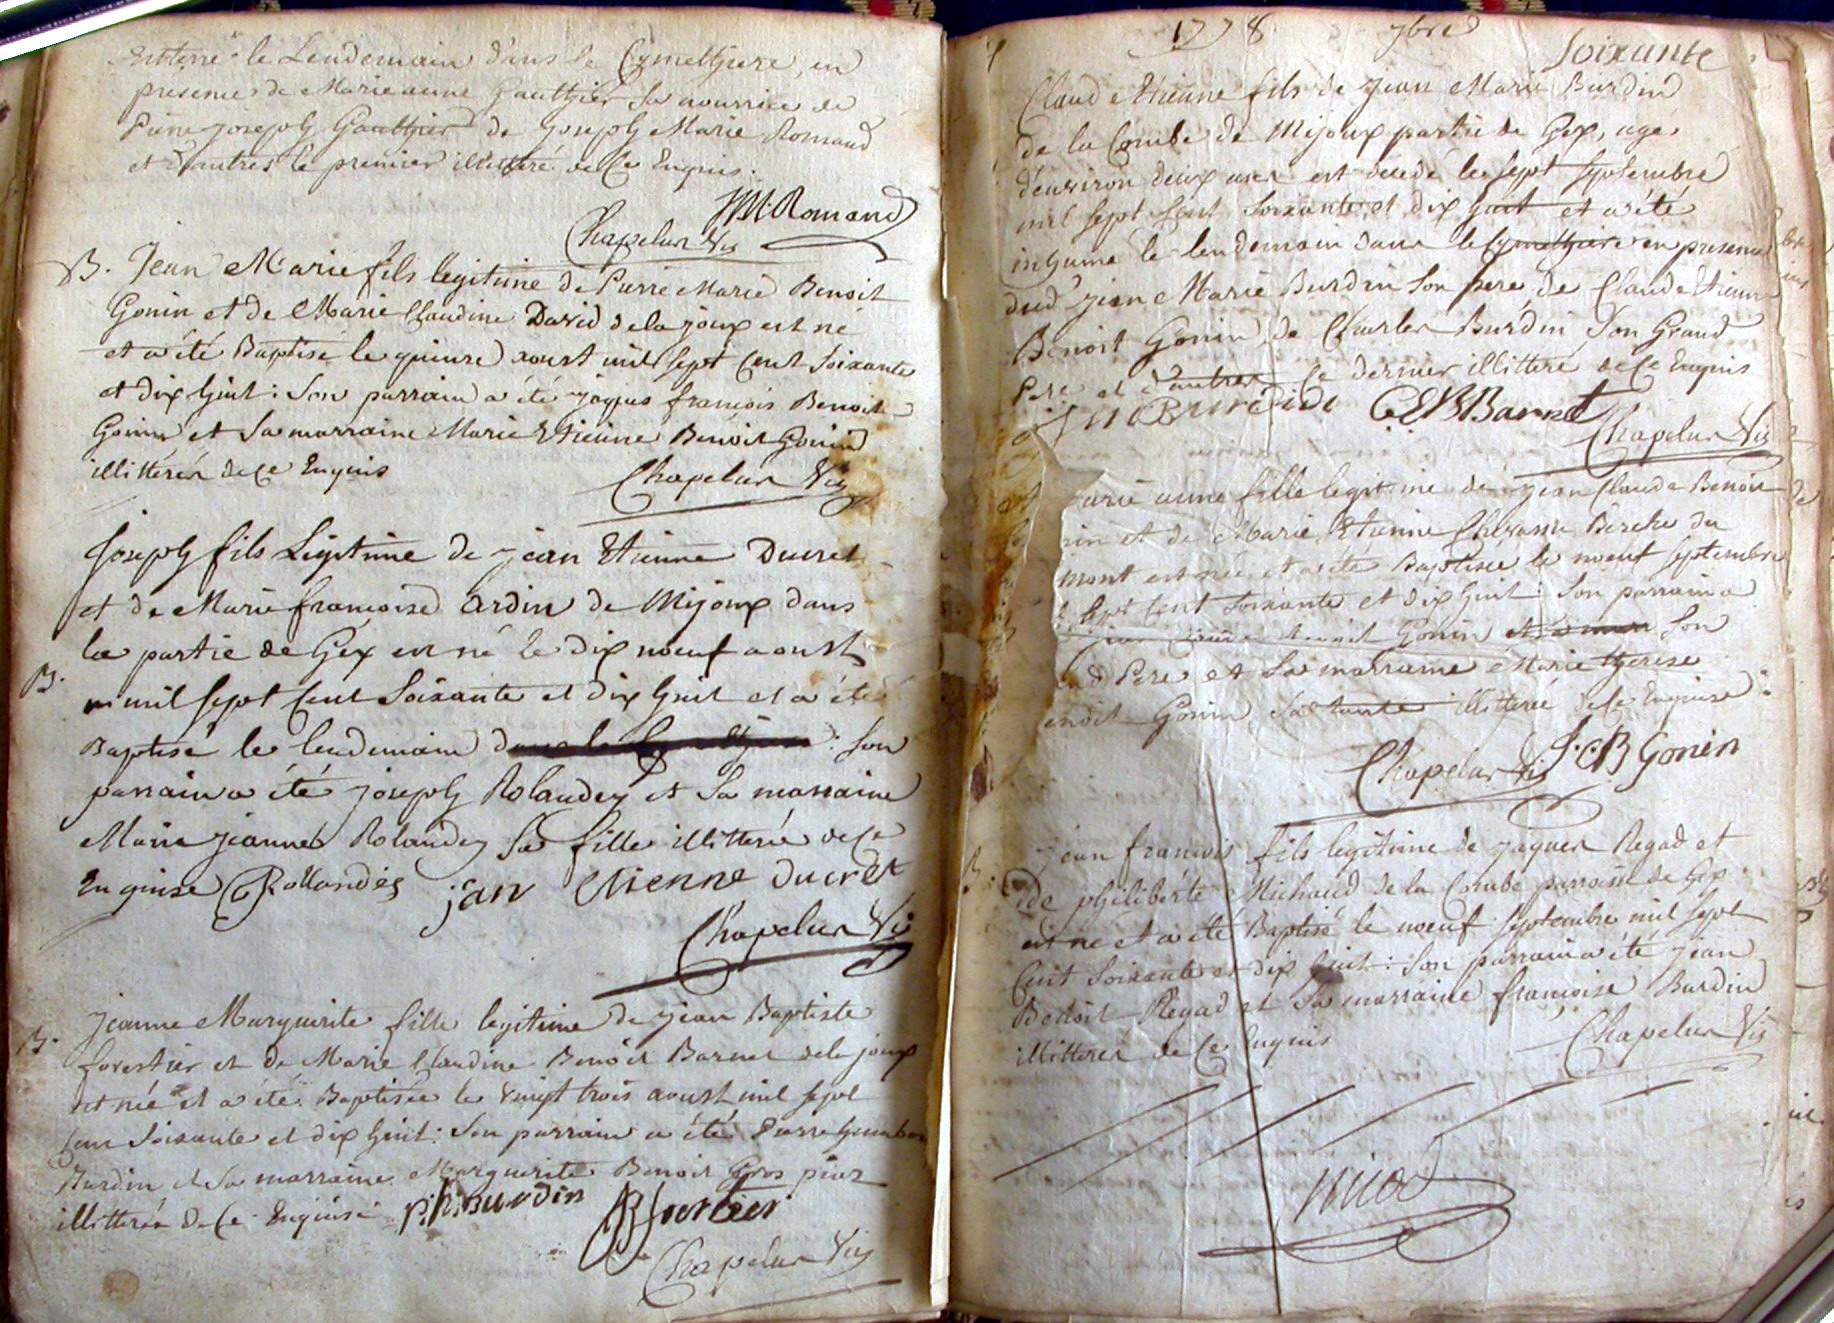 Enterré le Lendemain dans le Cymetthiere, en
presence de Marieanne Gautthier Sa nourrice de
Pierre joseph Gautthier de Joseph Marie Romand
et d'autres le premier illitteré de Ce Enquis.
JM. Romand
Chapelux Vic
B. Jean Marie fils legitime de Pierre Marie Benoit
Gonin et de Marie Claudine David de la joux est né
et a été Baptisé le quinze aoust mil sept Cent Soixante
et dix huit : Son parrain a été jaques francois Benoit
Gonin et Sa marraine Marie Etienne Benoit Gonin
illitterés de Ce Enquis
Chapelux Vic
Joseph fils Legitime de jean Etienne Ducret
et de Marie francoise Ardin de Mijoux dans
la partie de Gex est né le dix noeuf aoust
B. mil sept Cent Soixante et dix huit et a été
Baptisé le lendemain : Son
parrain a été joseph Rolandez et Sa marraine
Marie jeanne Rolandez Sa fille illitterée de Ce
Enquise Rollandes jan Etienne ducret
Chapelux Vic
B. Jeanne Marguerite fille legitime de jean Baptiste
forestier et de Marie Claudine Benoit Barnet dela joux
est née et a été Baptisée le vingt trois aoust mil sept
Cent Soixante et dix huit : Son parrain a été Pierre
Burdin et Sa marraine Marguerite Benoit Gros piez
illitterée de Ce Enquise p.h. burdin
Chapelux Vic
1778 7bre
Soixante
Claude Etienne fils de jean Marie Burdin
de la Combe de Mijoux partie de Gex, agé
d'environ deux ans est décédé le sept Septembre
mil sept Cent Soixante et dix huit et a été
inhumé le lendemain dans le Cymetthiere en presence
dud jean Marie Burdin Son pere, de Claude Etienne
Benoit Gonin, de Charles Burdin Son Grand
Pere et d'autres Ce dernier illitteré de Ce Enquis
CEBBarnet
Chapelux Vic
arie anne fille legitime de jean Claude Benoit
nin et de Marie Etienne du
mont est née et a été Baptisée le noeuf Septembre
sept Cent Soixante et dix huit : Son parrain a
Benoit Gonin Son
nd Pere et Sa marraine Marie therese
enoit Gonin Sa tante illitterée de Ce Enquise :
Chapelux Vic J.C.B Gonin
B. jean francois fils legitime de jaques Regad et
de philiberte Michaud de la Combe parroisse de Gex
est né et a été Baptisé le noeuf Septembre mil sept
Cent Soixante et dix huit : Son parrain a été jean
Benoit Regad et Sa marraine françoise Burdin
illitterés de Ce Enquis
Chapelux Vic